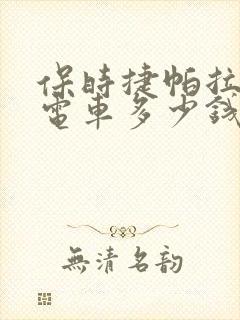 保時捷帕拉
電車多少錢
無清名韵